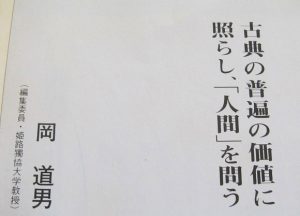 古典の普遍の価値に
照らし、「人間」を問う
岡 道男
（編集委員・姫路獨協大学教授）